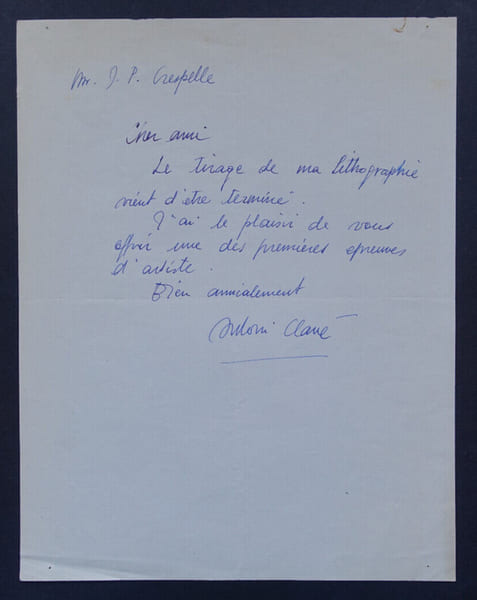 Mr. J. P. Crespelle
Cher ami
Le tirage de ma lithographie
vient d'être terminé.
J'ai le plaisir de vous
offrir une des premières épreuves
d'artiste.
Bien amicalement
Antoni Clavé